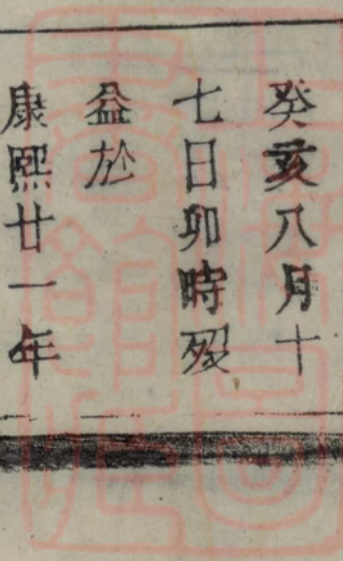 癸亥八月十
七日卯時殁
益於
康熙廿一年